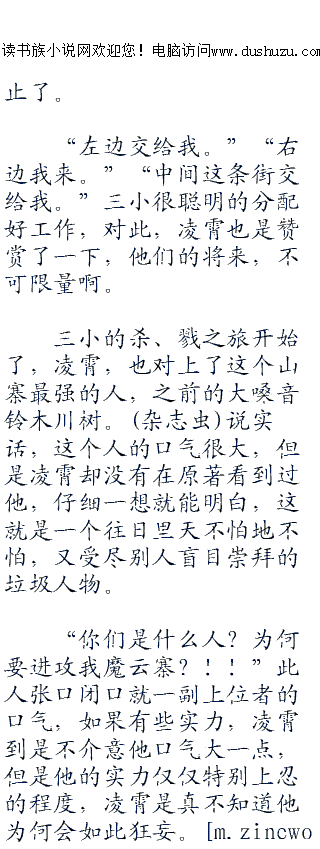 读书族小说网欢迎您！电脑访问www.dushuzu.com
止了。
“左边交给我。”“右
边我来。”“中间这条街交
给我。”三小很聪明的分配
好工作，对此，凌霄也是赞
赏了一下，他们的将来，不
可限量啊。
三小的杀、戮之旅开始
了，凌霄，也对上了这个山
寨最强的人，之前的大嗓音
铃木川树。(杂志虫)说实
话，这个人的口气很大，但
是凌霄却没有在原著看到过
他，仔细一想就能明白，这
就是一个往日里天不怕地不
怕，又受尽别人盲目崇拜的
垃圾人物。
“你们是什么人？为何
要进攻我魔云寨？！！”此
人张口闭口就一副上位者的
口气，如果有些实力，凌霄
到是不介意他口气大一点，
但是他的实力仅仅特别上忍
的程度，凌霄是真不知道他
为何会如此狂妄。[m.zincwo